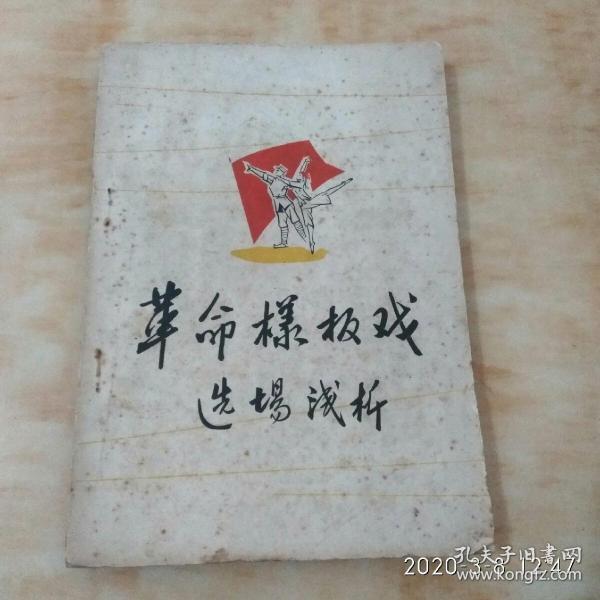 革命樣板戏
选場浅析
2020-3-8 12:47
孔夫子旧書网
www.kongfz.com